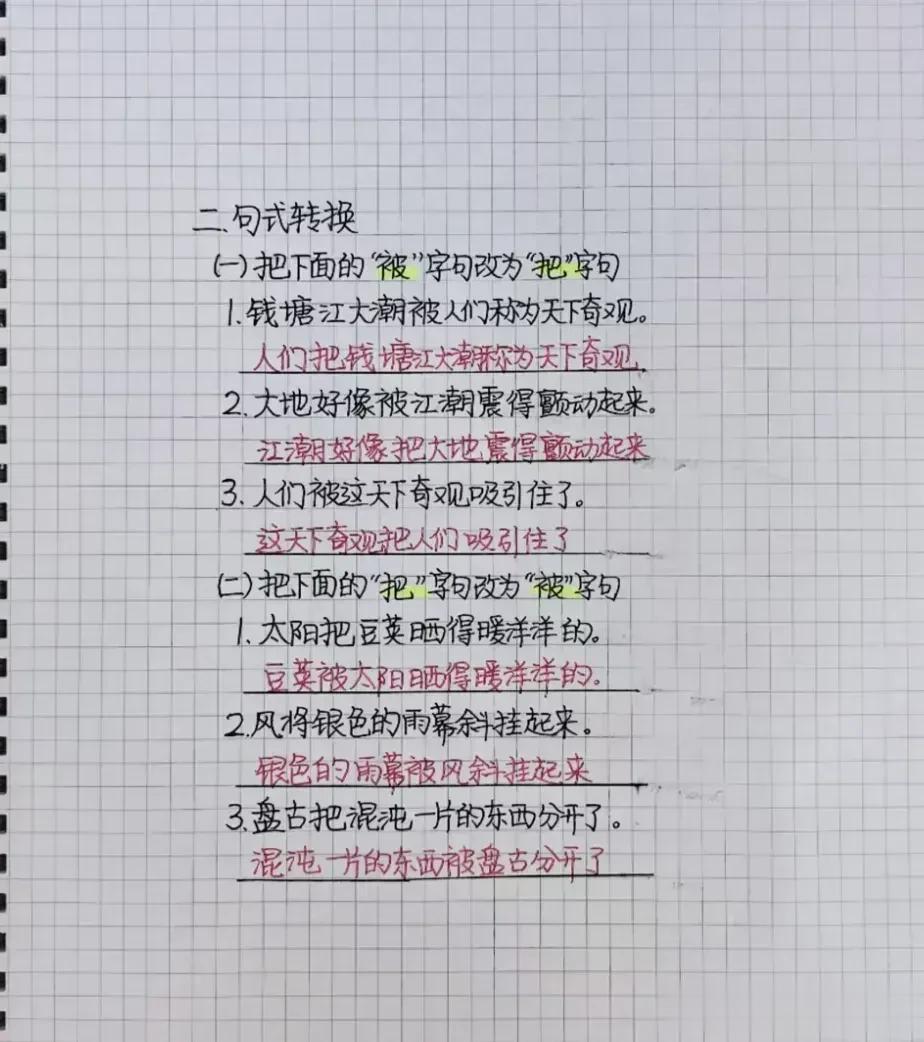 二.句式转换
(一)把下面的“被”字句改为“把”字句
1.钱塘江大潮被人们称为天下奇观。
人们把钱塘江大潮称为天下奇观.
2.大地好像被江潮震得颤动起来。
江潮好像把大地震得颤动起来
3.人们被这天下奇观吸引住了。
这天下奇观把人们吸引住了
(二)把下面的“把”字句改为“被”字句
1.太阳把豆荚晒得暖洋洋的。
豆荚被太阳晒得暖洋洋的.
2.风将银色的雨幕斜挂起来。
银色的雨幕被风斜挂起来
3.盘古把混沌一片的东西分开了。
混沌一片的东西被盘古分开了